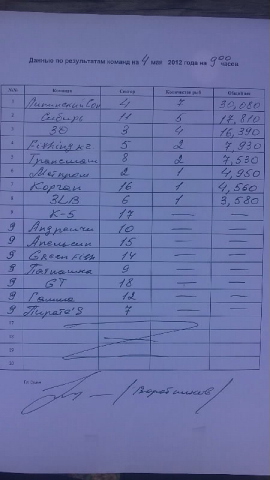 Данные по результатам команд на 4 мая 2012 года на 9 00 часов
№ Команда Сектор Количество рыб
1 4 7 30,080
2 Сибирь 11 5 17,810
3 ЗО 3 4 16,390
4 Fishing.kz 5 2 7,930
5 Трансмаш 8 2 7,530
6 2 1 4,950
7 Корган 16 1 4,560
8 6 1 3,580
К-5 17 — —
9 Андреичи 10 — —
9 Апельсин 15 — —
9 Green Fish 14 — —
9 9 — —
9 GT 18 — —
9 Гамма 12 — —
9 Пираты'S 7 — —
17
18
19
20